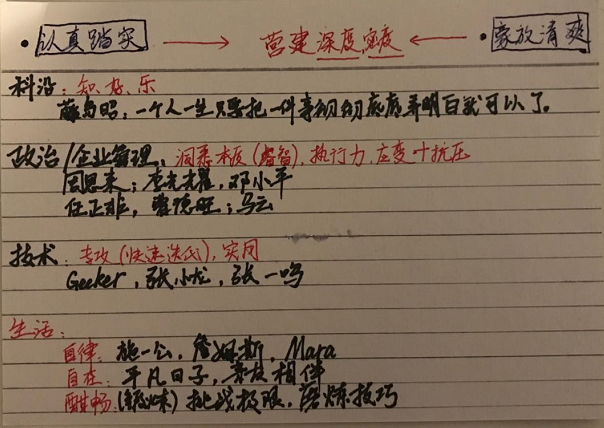 • 认真踏实 → 营建深度,宽度 ← • 豪放清爽
科沿: 知、好、乐
薛与昭,一个人一生只要把一件事彻彻底底弄明白就可以了。
政治/企业管理: 洞悉本质(睿智),执行力,应变+抗压
周恩来; 李光耀,邓小平
任正非,曹德旺;马云
技术: 专攻(快速迭代),实用
Geeker,张小龙,张一鸣
生活:
自律: 施一公,詹姆斯,Mara
自在: 平凡日子,亲友相伴
酣畅: 挑战极限,磨炼技巧